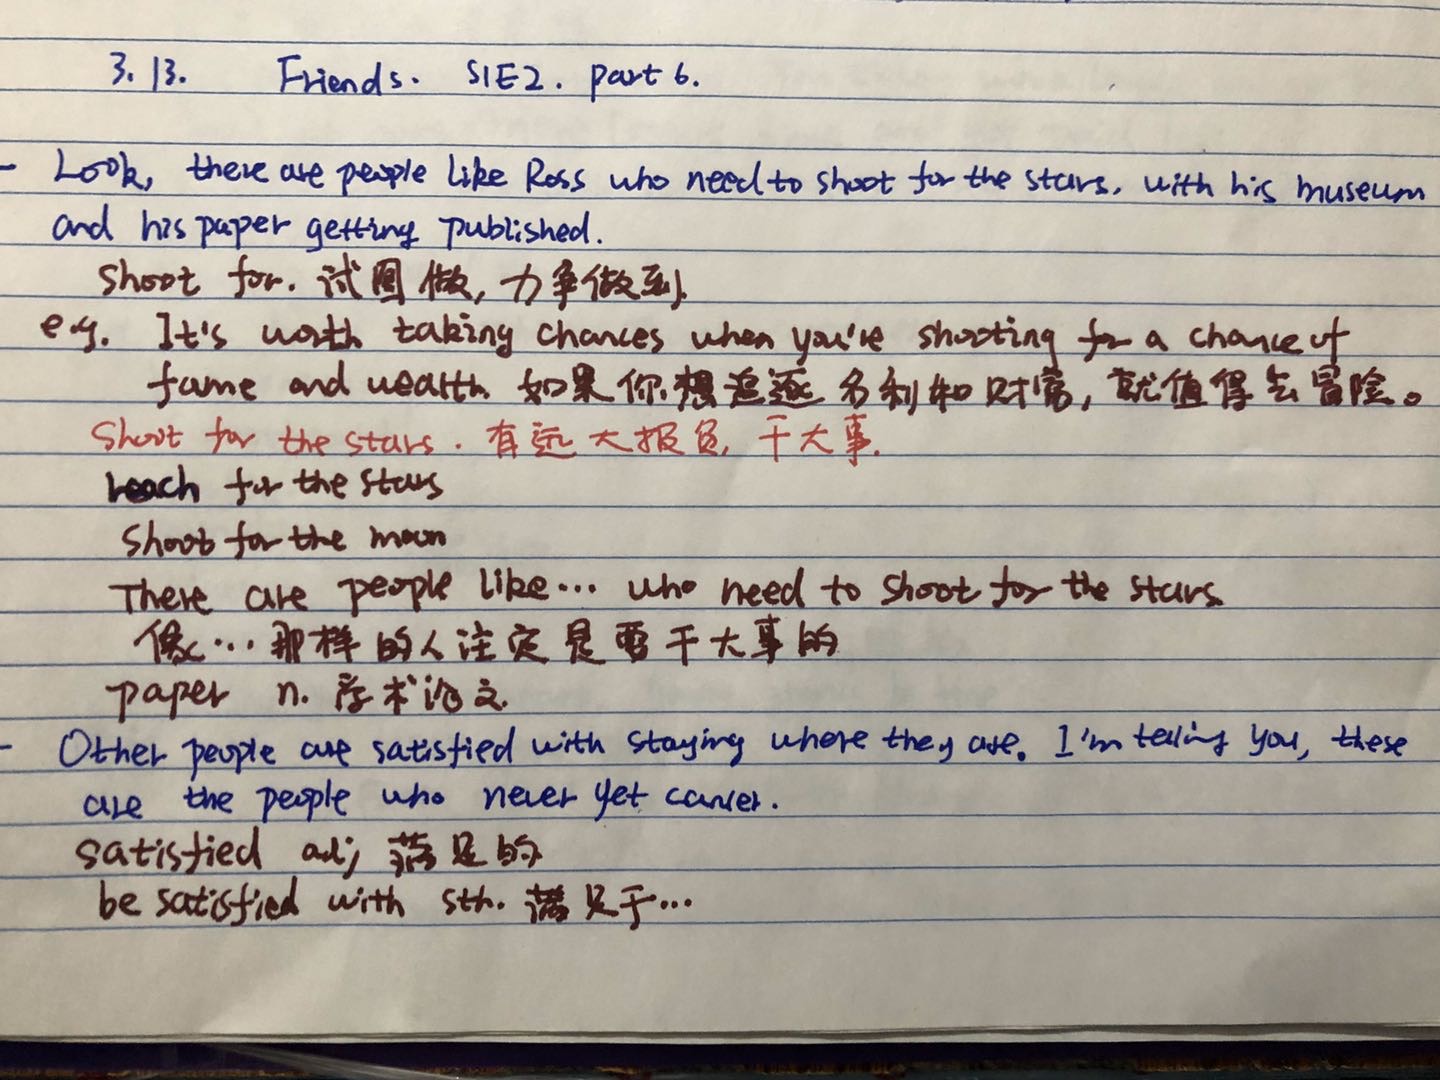 3.13. Friends. S1E2. part 6.
- Look, there are people like Ross who need to shoot for the stars, with his museum
and his paper getting published.
shoot for. 试图做, 力争做到.
e.g. It's worth taking chances when you're shooting for a chance of
fame and wealth. 如果你想追逐名利和财富, 就值得去冒险。
Shoot for the stars. 有远大报负, 干大事.
reach for the stars
shoot for the moon
There are people like... who need to shoot for the stars
像...那样的人注定是要干大事的
paper n. 学术论文
- Other people are satisfied with staying where they are. I'm telling you, these
are the people who never yet cancer.
satisfied adj 满足的
be satisfied with sth. 满足于...